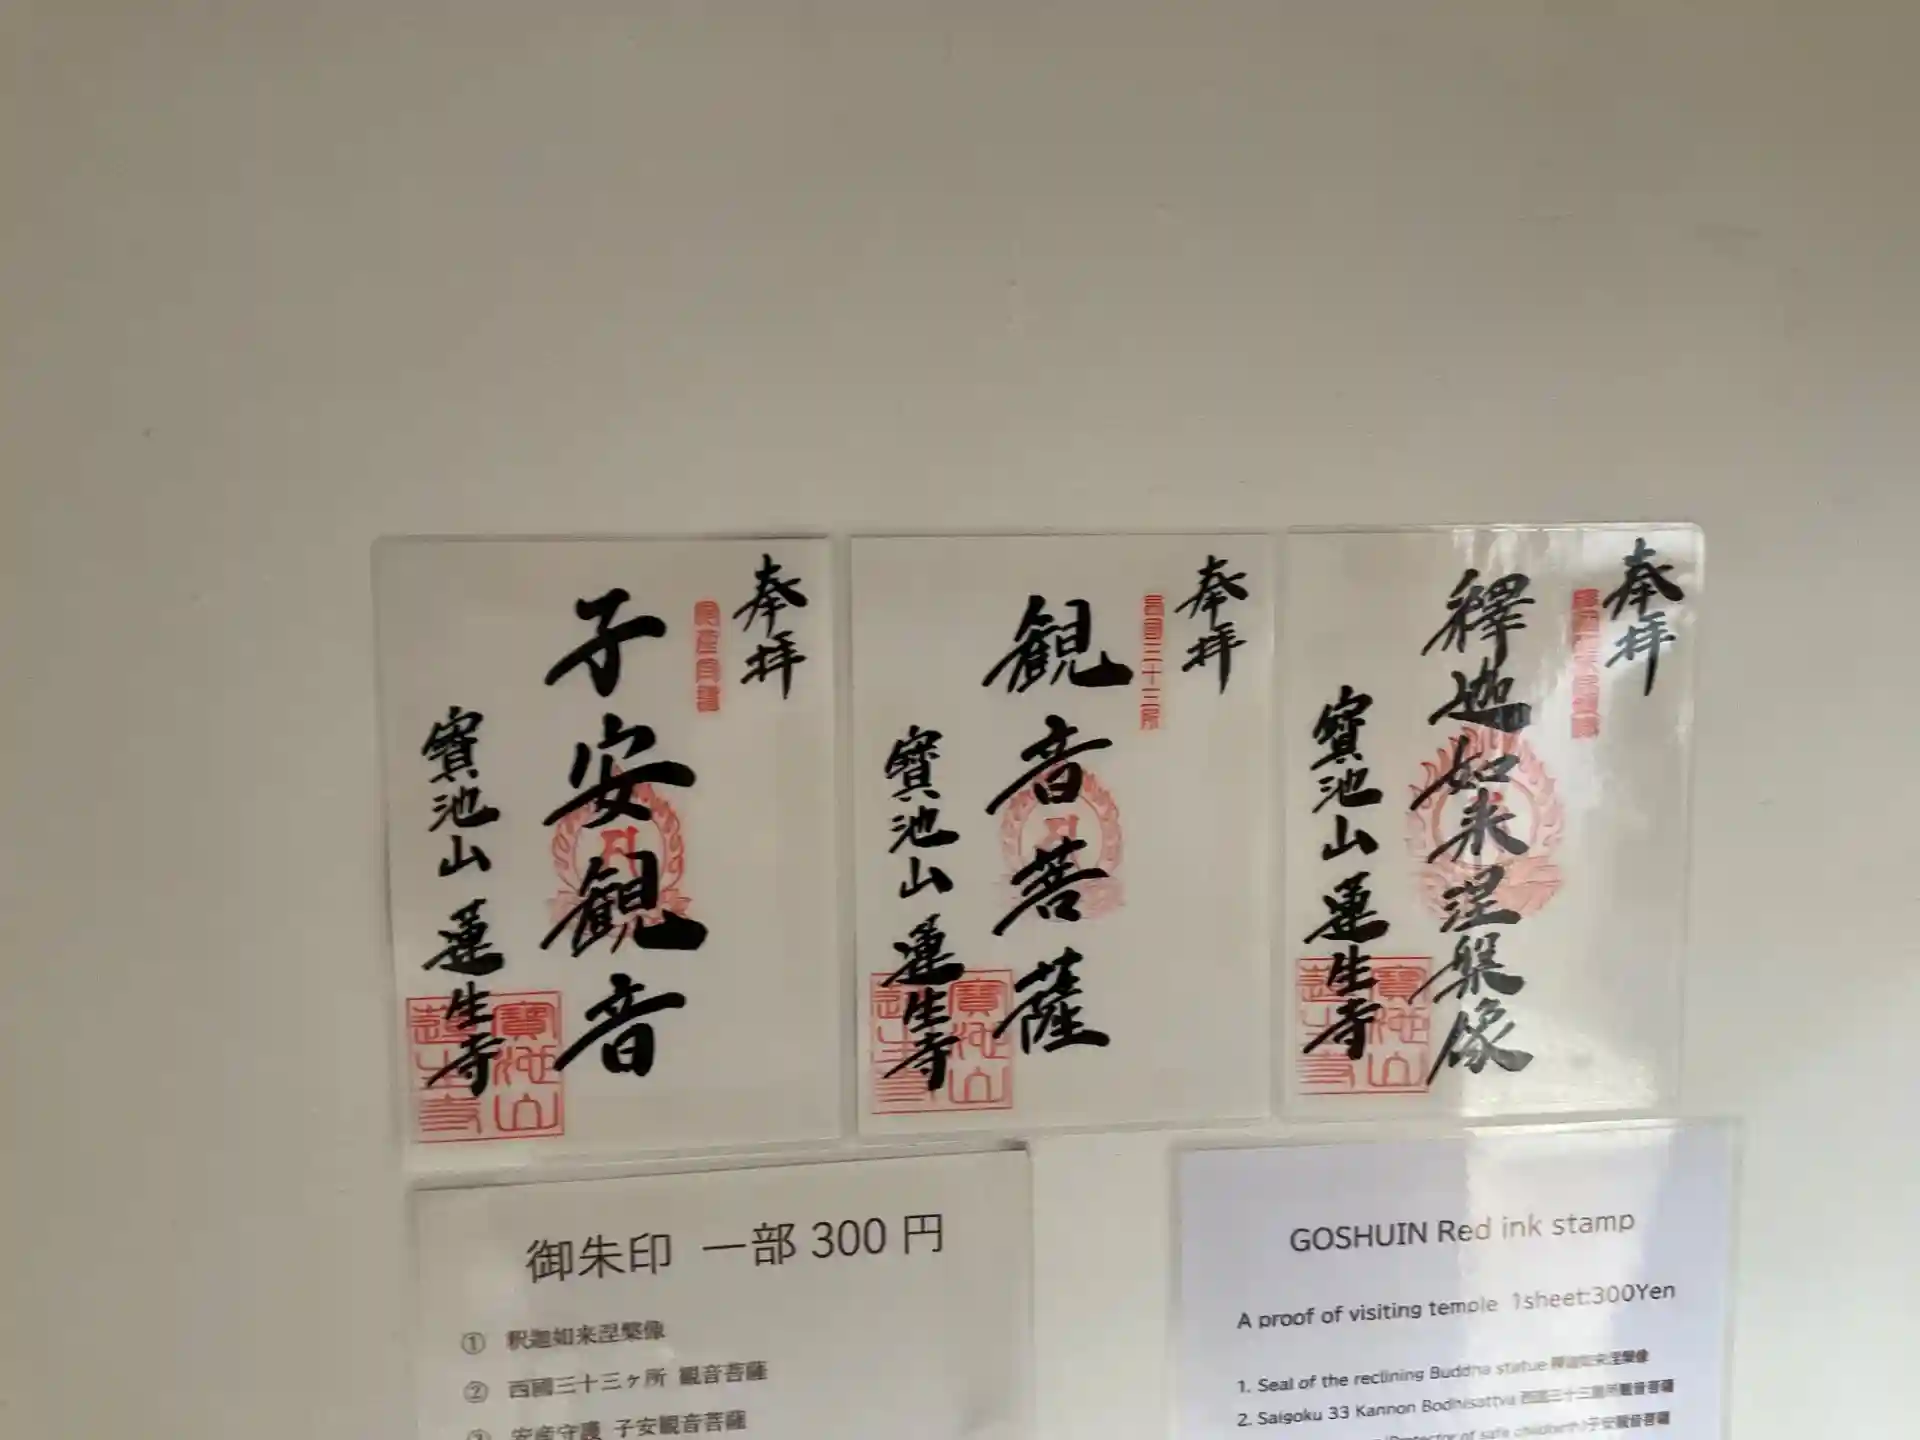 奉拝
釋迦如来涅槃像
寶池山 蓮生寺
奉拝
西国三十三所
観音菩薩
寶池山 蓮生寺
寶池山
蓮生寺
奉拝
安産守護
子安観音
寶池山 蓮生寺
寶池山
蓮生寺
御朱印 一部 300 円
① 釈迦如来涅槃像
② 西國三十三ヶ所 観音菩薩
③ 安産守護 子安観音菩薩
GOSHUIN Red ink stamp
A proof of visiting temple 1sheet:300Yen
1. Seal of the reclining Buddha statue 釋迦如来涅槃像
2. Saigoku 33 Kannon Bodhisattva 西國三十三箇所観音菩薩
(Protector of safe childbirth)子安観音菩薩